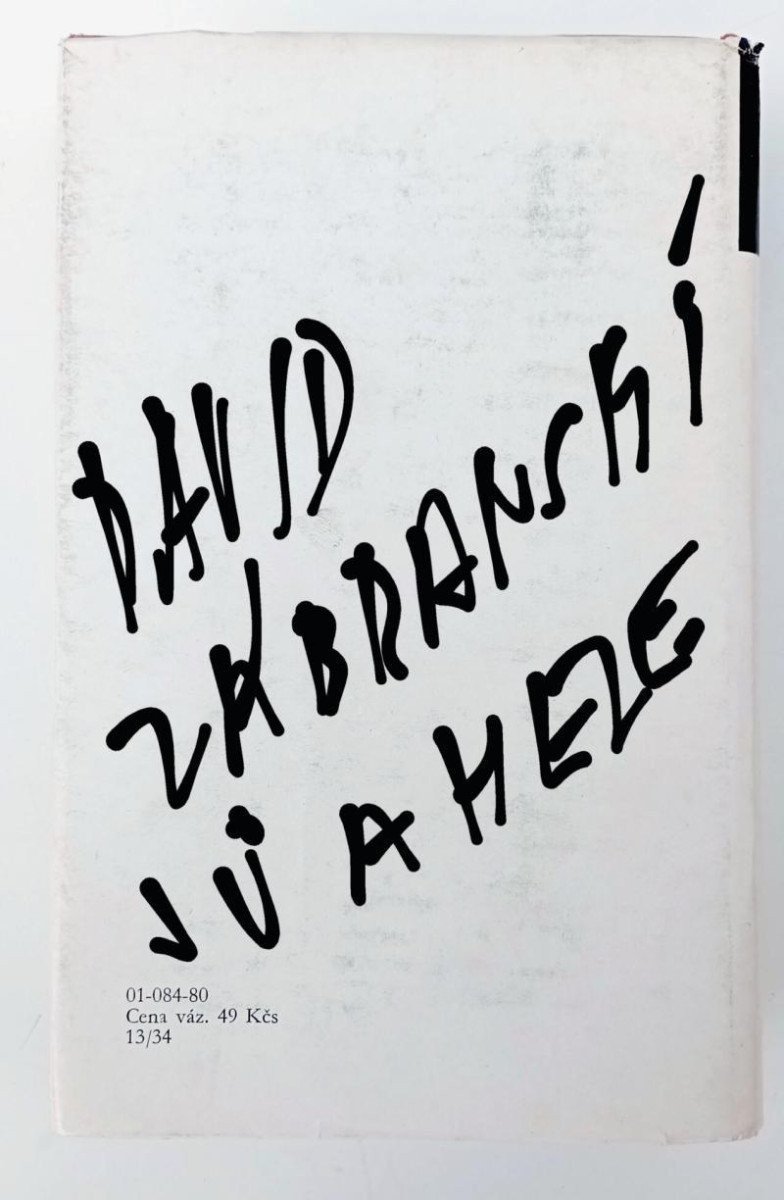 DAVID
ZABRANSKÍ
JŮ A HELE
01-084-80
Cena váz. 49 Kčs
13/34